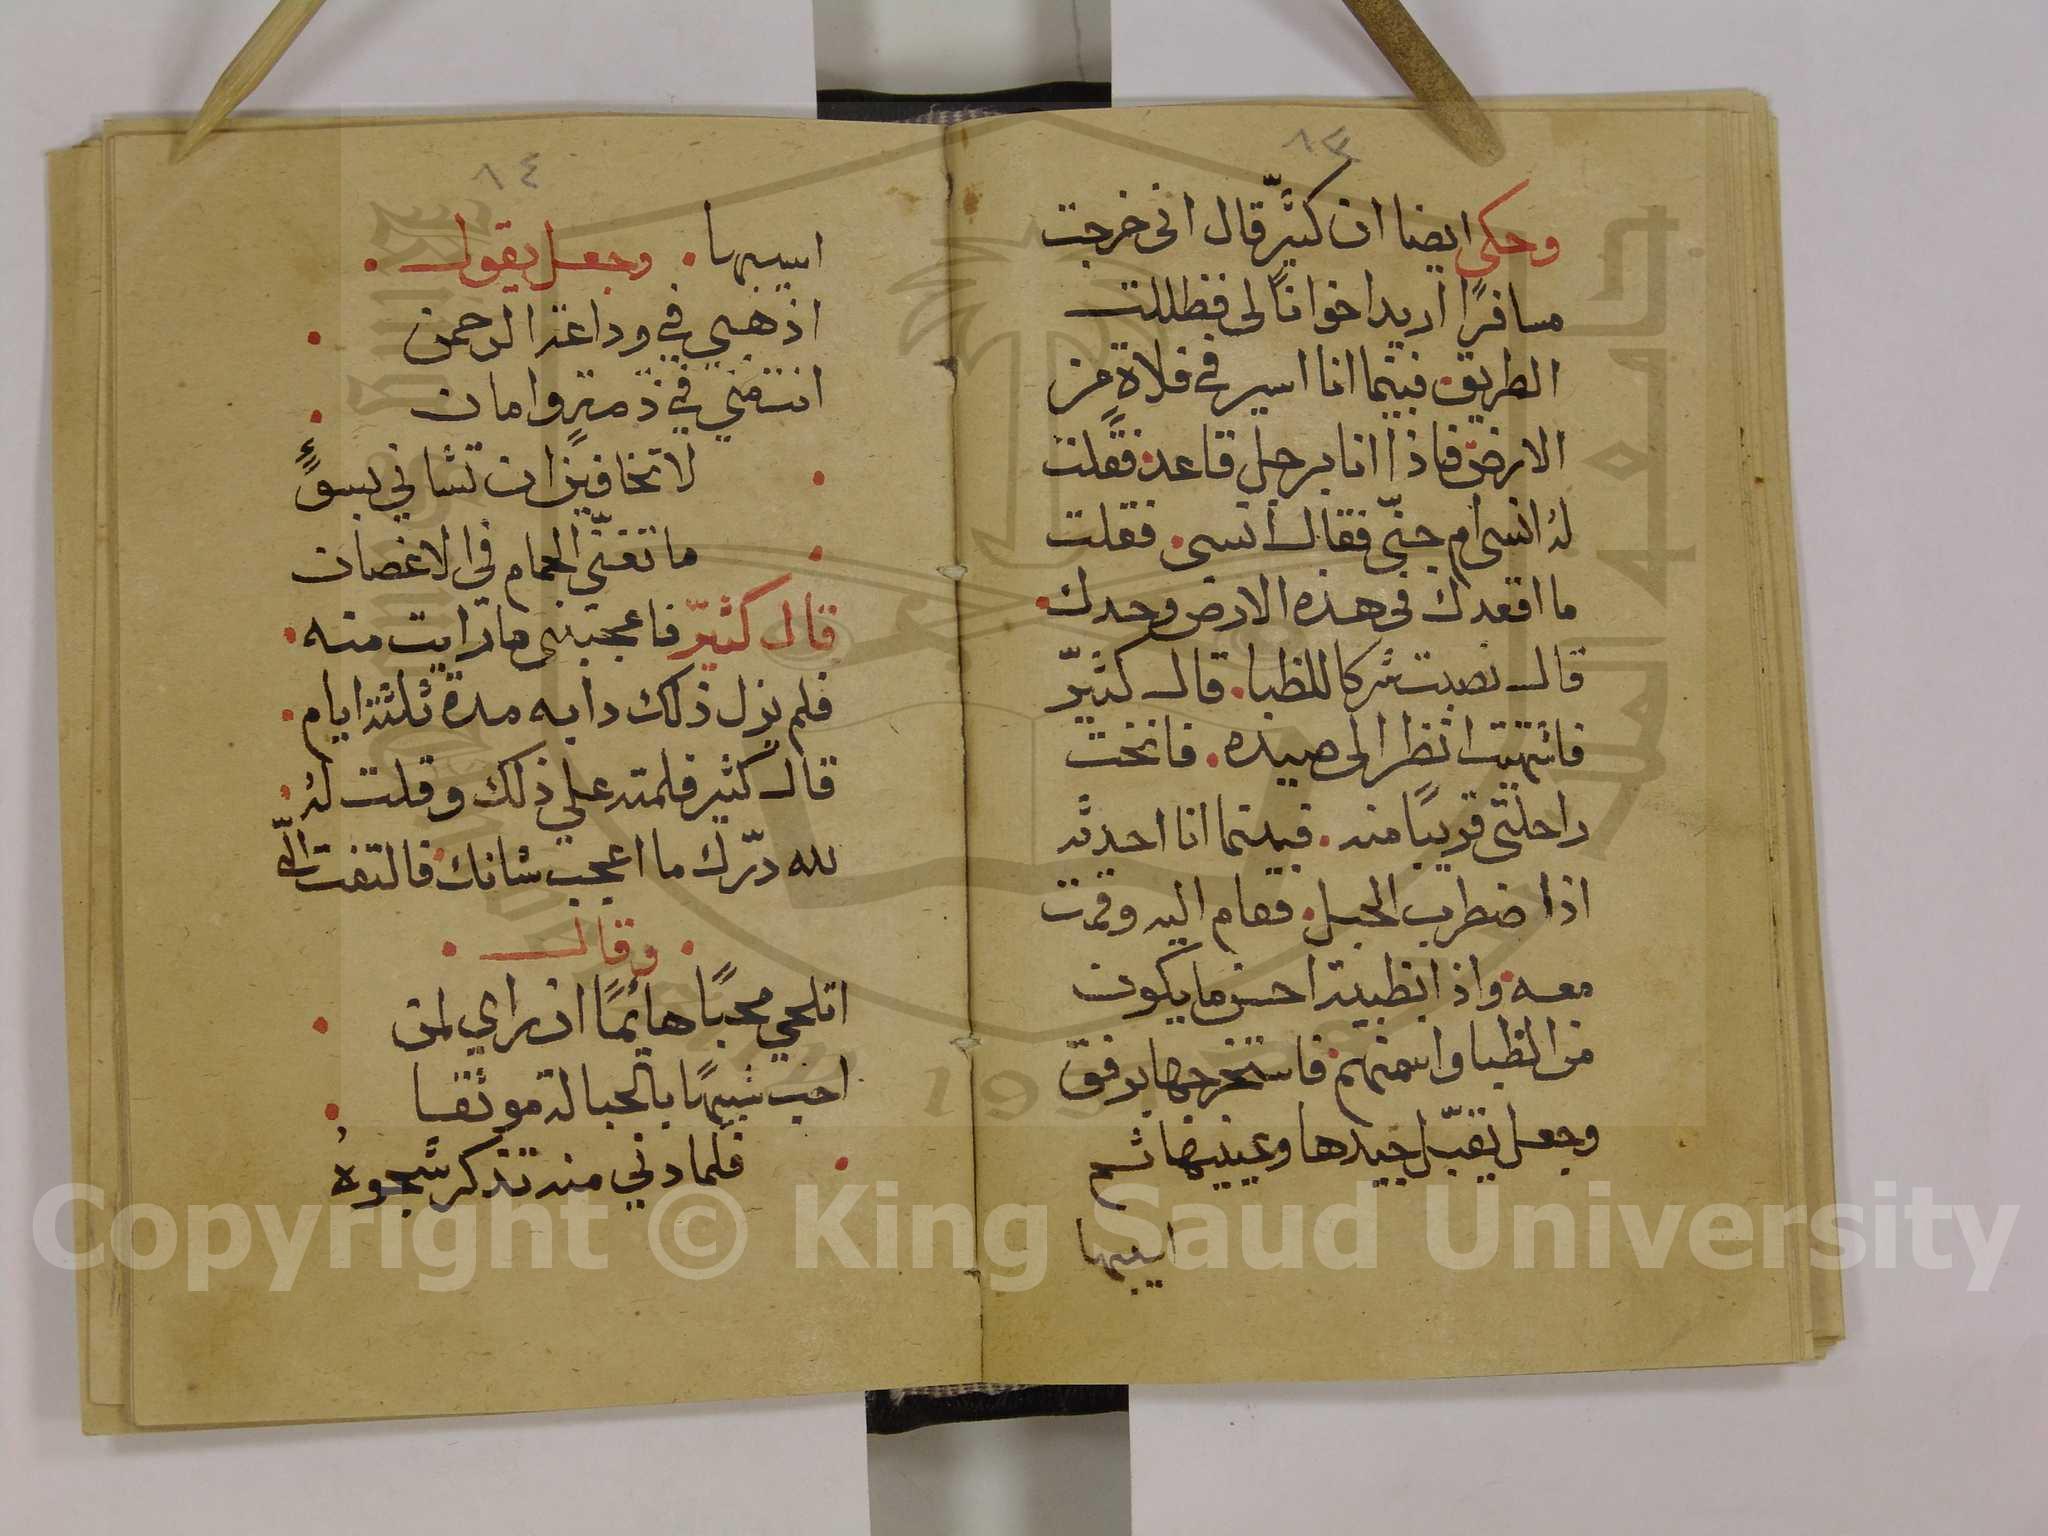 ٨٣
وحكى ايضا ان كثيّر قال انى خرجت
مسافرًا اريد اخوانًا لى فظللت
الطريق فبينما انا اسير فى فلاةٍ من
الارض فاذا انا برجل قاعد فقلت
لهُ انسى ام جنّى فقال انسى فقلت
ما اقعدك فى هذه الارض وحدك
قال نصبت شركا للظبا قال كثيّر
فاشتهيت انظر الى صيده فانخت
راحلتى قريبًا منه فبينما انا احدثه
اذا ضطرب الحبل فقام اليه وقمت
معه واذا بظبية احسن ما يكون
من الظبا واسمنهم فاستخرجها برفق
وجعل يقبّل جيدها وعينيها ثم
اسيبها
٨٤
اسيبها وجعل يقول
اذهبي في وداعة الرحمن
انت مني في ذمة وامان
لا تخافين ان تشاني بسوءٍ
ما تغنّي الحمام في الاغصان
قال كثيّر فاعجبنى ما رايت منه
فلم يزل ذلك دابه مدة ثلثة ايام
قال كثير فلمته على ذلك وقلت لهُ
لله درّك ما اعجب شانك فالتفت الّى
وقال
اتلحي محبًا هائمًا ان راي لمن
احب شبيهًا بالحبالة موثقا
فلما دني منه تذكر شجوهُ
Copyright © King Saud University